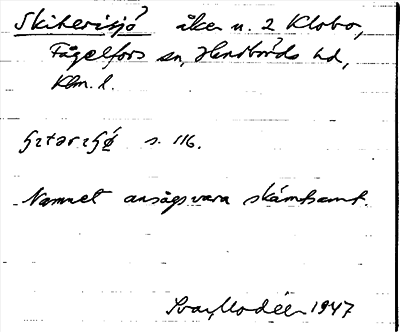 Skiterisjö? åker u. 2 Klobo,
Fågelfors sn, Handbörds hd,
Klm. l.
s. 116.
Namnet ansågs vara skämtsamt.
Ivar Modéer 1947